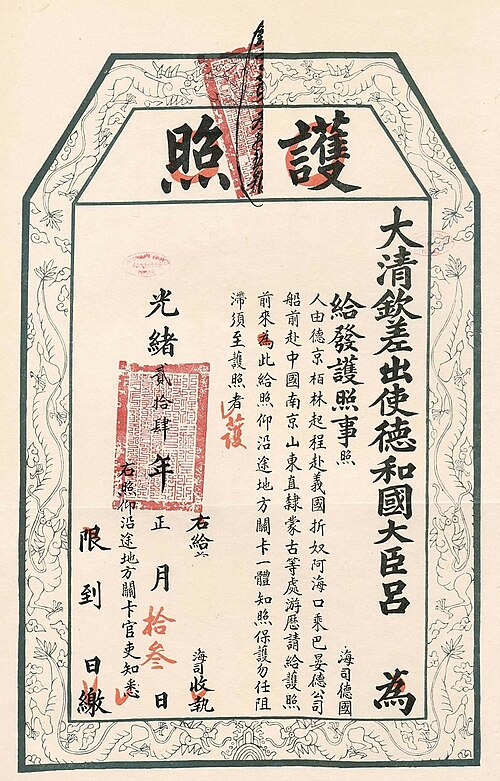 護照
大清欽差出使德和國大臣呂 為
給發護照事照 海司德國
人由德京柏林起程赴義國折奴阿海口乘巴晏德公司
船前赴中國南京山東直隸蒙古等處游歷請給護照
前來為此給照仰沿途地方關卡一體知照保護勿任阻
滯須至護照者
護
右給 海司收執
光緒貳拾肆年正月拾叁日
右照仰沿途地方關卡官吏知悉
限到 日繳